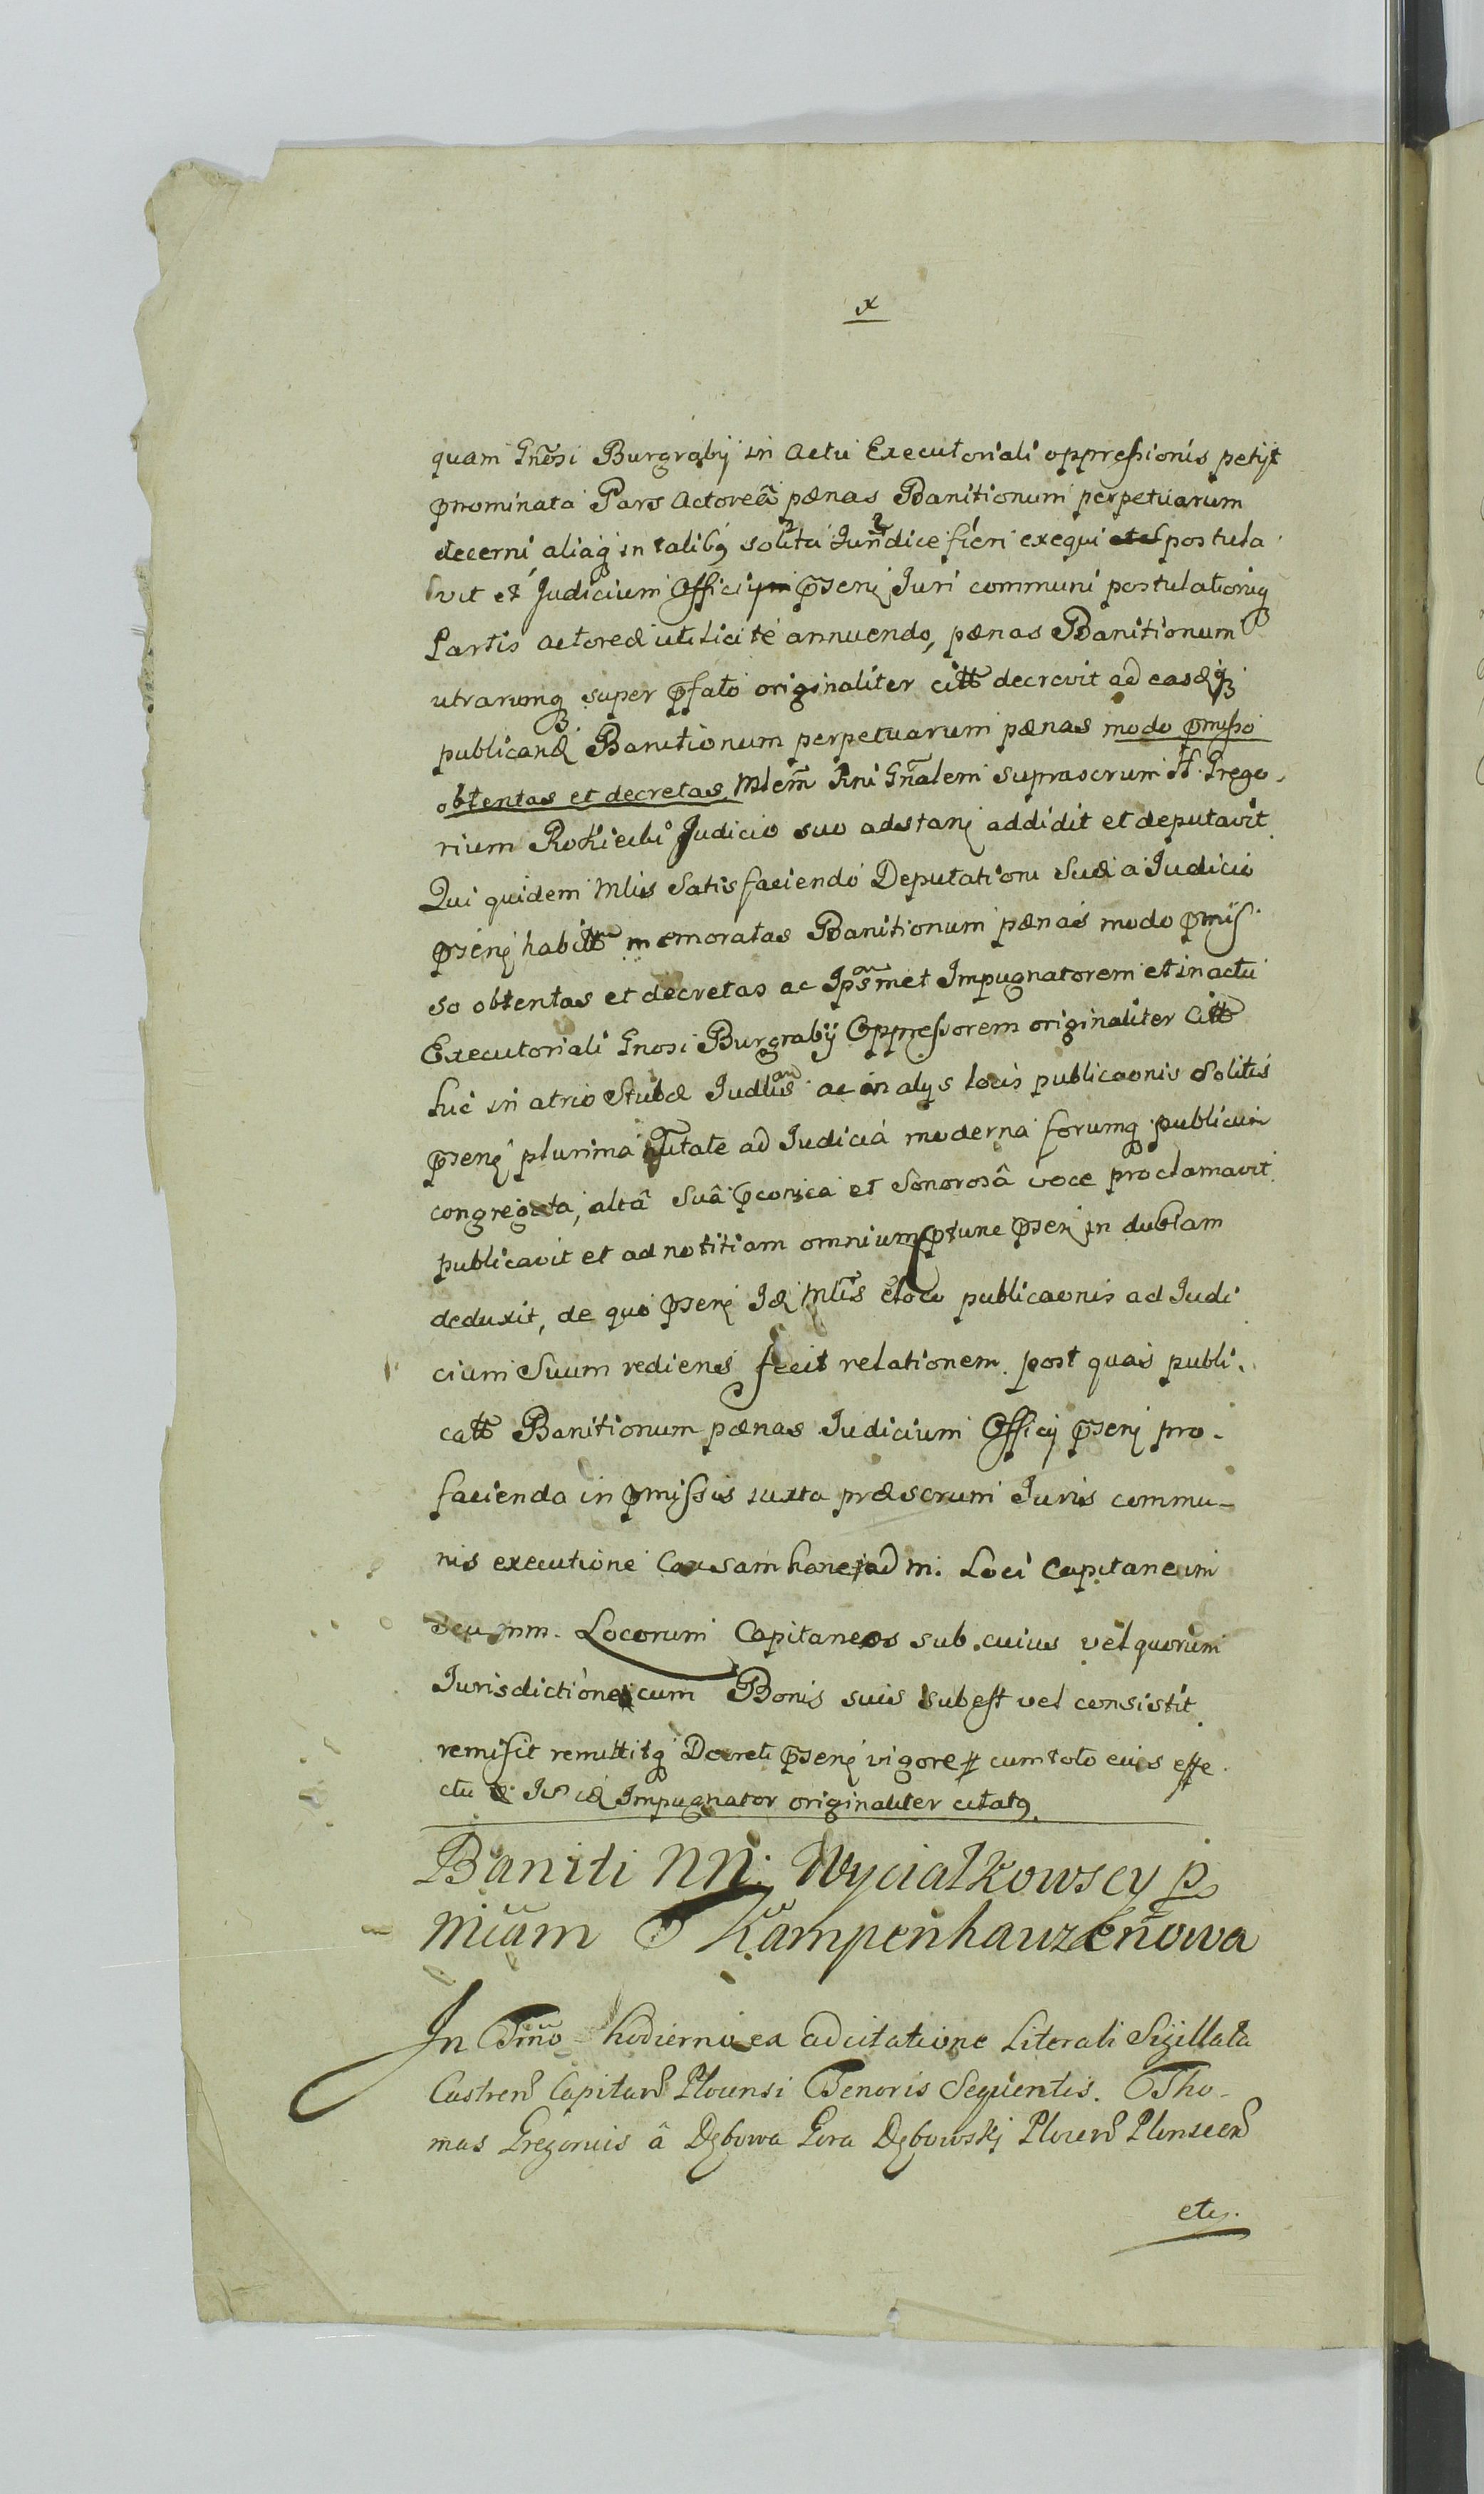 x
quam Gnosi Burgrabij in Actu Executoriali oppressionis petijt
pnominata Pars Actorea pænas Banitionum perpetuarum
decerni, aliaq in talibq solita Juridice fieri exequi postula
vit et Judicium Officij psenę Juri communi postulationiq
Partis actoreæ ute licite annuendo, pænas Banitionum
utrarumq super pfato originaliter citt decrevit ad easq
publicand Banitionum perpetuarum pænas modo pmisso
obtentas et decretas, Mlem Rni Gnalem suprascrum H. Grego
rium Rokicki Judicio suo adstanę addidit et deputavit
Qui quidem Mlis Satisfaciendo Deputationi Suæ a Judicio
psenę habittæ memoratas Banitionum pænas modo pmis
so obtentas et decretas ac Ipsmet Impugnatorem et in actu
Executoriali Gnosi Burgrabij Oppressorem originaliter Citt
hic in atrio Stubæ Judlis ac in alys locis publicaonis Solitis
psenę plurima ntate ad Judicia moderna forumq publicum
congregata, altâ Suâ pconica et Sonorosâ voce proclamavit
publicavit et ad notitiam omnium ptunc psenę in dublam
deduxit, de quo psenę Id Mlis e loco publicaonis ad Judi
cium Suum rediens fecit relationem. post quas publi.
catt Banitionum pænas Judicium Officij psenę pro.
facienda in pmissis iuxta præscrum Juris commu-
nis executione Causam hanc ad m. Loci Capitaneum
seu mm. Locorum Capitaneos sub cuius vel quorum
Jurisdictione cum Bonis suis subest vel consistit
remisit remittitq Decreti psenę vigore cum toto eius effe
ctu Impugnator originaliter citatq.
Baniti NN. Wyciałkowscy p
Mcam Kampenhauzenowa
In Tmno hodierno ex ad citatione Literali Sigillata
Castren Capitan Plocensi Tenoris Sequentis. Tho-
mas Gregorius â Dębowa Gora Dębowskj Plocen Plonscen
etc.